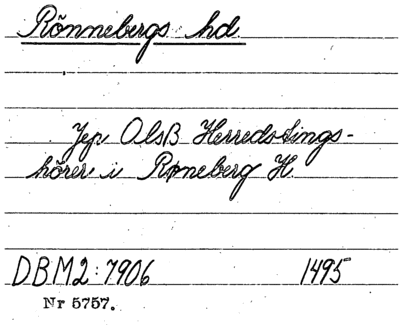 Rönnebergs hd.
Jep Olsß Herredstings-
hörer i Røneberg H.
DBM2:7906 1495
Nr 5757.